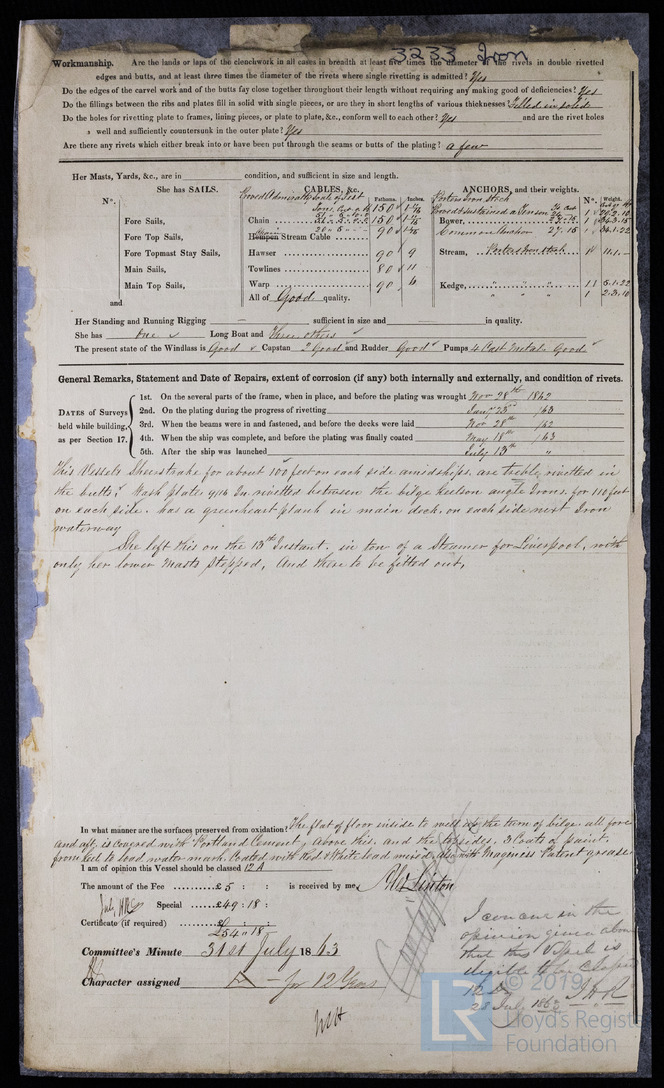 3233 Iron
Workmanship. Are the lands or laps of the clenchwork in all cases in breadth at least five times the diameter of the rivets in double rivetted
edges and butts, and at least three times the diameter of the rivets where single rivetting is admitted? Yes
Do the edges of the carvel work and of the butts fay close together throughout their length without requiring any making good of deficiencies? Yes
Do the fillings between the ribs and plates fill in solid with single pieces, or are they in short lengths of various thicknesses? Filled in solid
Do the holes for rivetting plate to frames, lining pieces, or plate to plate, &c., conform well to each other? Yes and are the rivet holes
well and sufficiently countersunk in the outer plate? Yes
Are there any rivets which either break into or have been put through the seams or butts of the plating? a few
Her Masts, Yards, &c., are in condition, and sufficient in size and length.
She has SAILS. CABLES, &c. ANCHORS, and their weights.
N°. Fathoms. Inches. N°. Weight.
Proved Admiralty Test
Fore Sails, Chain 150 1 7/16 Bower,
Fore Top Sails, Chain Hempen Stream Cable 90 Common Anchor 27.15 1 24.1.22
Fore Topmast Stay Sails, Hawser 90 9 Stream, Porters Iron Stock 11.1.-
Main Sails, Towlines 80 11
Main Top Sails, Warp 90 6 Kedge, 1 5.1.22
and All of Good quality. 1 2.3.10
Her Standing and Running Rigging sufficient in size and in quality.
She has one Long Boat and three others
The present state of the Windlass is Good Capstan 2 Good and Rudder Good Pumps 4 Cast Metal Good
General Remarks, Statement and Date of Repairs, extent of corrosion (if any) both internally and externally, and condition of rivets.
DATES of Surveys held while building, as per Section 17.
1st. On the several parts of the frame, when in place, and before the plating was wrought Nov 28th 1862
2nd. On the plating during the progress of rivetting Jany 23rd /63
3rd. When the beams were in and fastened, and before the decks were laid Nov 28th /62
4th. When the ship was complete, and before the plating was finally coated May 18th /63
5th. After the ship was launched July 13th "
This Vessels Sheerstrake for about 100 feet on each side amidships are treble rivetted in
the butts, Wash plate 9/16 In. rivetted between the bilge keelson angle Irons for 110 feet
on each side. has a greenheart plank in main deck, on each side next Iron
waterway
She left this on the 13th Instant. in tow of a Steamer for Liverpool, with
only her lower Masts stepped, And there to be fitted out,
In what manner are the surfaces preserved from oxidation? The flat of floor inside to well up the turn of bilge all fore
and aft, is covered with Portland Cement, above this, and the topsides, 3 Coats of paint,
from keel to load water mark Coated with Red & White lead mixed, also with Paten grease
I am of opinion this Vessel should be classed 12 A
The amount of the Fee £5 : : is received by me,
July Special £49 : 18 :
Certificate (if required) £0 : :
£54 " 18
Committee's Minute 31st July 1863
Character assigned A - for 12 Years
I concur in the
opinion given above
that this Vessel is
eligible to be Classed
12
28 July 1863
© 2019
LR Lloyd's Register
Foundation